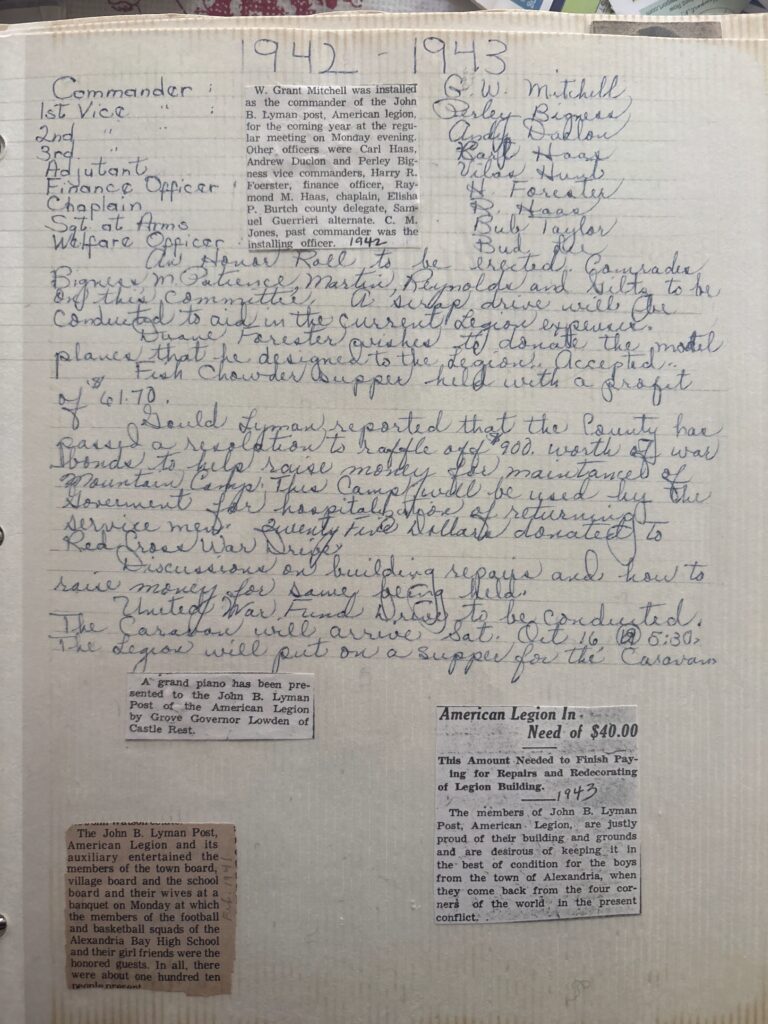 1942 - 1943
Commander :
1st Vice " :
2nd "
3rd "
Adjutant
Finance Officer
Chaplain
Sgt at Arms
Welfare Officer
W. Grant Mitchell was installed
as the commander of the John
B. Lyman post, American legion,
for the coming year at the regu-
lar meeting on Monday evening.
Other officers were Carl Haas,
Andrew Duclon and Perley Big-
ness vice commanders, Harry R.
Foerster, finance officer, Ray-
mond M. Haas, chaplain, Elisha
P. Burtch county delegate, Sam-
uel Guerrieri alternate. C. M.
Jones, past commander was the
installing officer. 1942
G. W. Mitchell
Perley Bigness
Andy Duclon
Karl Haas
Vilas Hunt
H. Forester
R. Haas
Bub Taylor
Bud
An Honor Roll to be erected. Comrades
Bigness, M. Patience, Martin, Reynolds and Siltz to be
on this committee. A scrap drive will be
conducted to aid in the current Legion expenses.
Duane Forester wishes to donate the model
planes that he designed to the Legion. Accepted.
Fish Chowder Supper held with a profit
of $61.70.
Gould Lyman reported that the County has
passed a resolution to raffle off $900. worth of war
bonds to help raise money for maintance of
Mountain Camp. This Camp will be used by the
Goverment for hospitalization of returning
service men. Twenty Five Dollars donated to
Red Cross War Drive.
Discussions on building repairs and how to
raise money for same being held.
United War Fund Drive to be conducted.
The Caravan will arrive Sat. Oct 16 @ 5:30.
The Legion will put on a supper for the Caravan
A grand piano has been pre-
sented to the John B. Lyman
Post of the American Legion
by Grove Governor Lowden of
Castle Rest.
American Legion In
Need of $40.00
This Amount Needed to Finish Pay-
ing for Repairs and Redecorating
of Legion Building.
1943
The members of John B. Lyman
Post, American Legion, are justly
proud of their building and grounds
and are desirous of keeping it in
the best of condition for the boys
from the town of Alexandria, when
they come back from the four cor-
ners of the world in the present
conflict.
The John B. Lyman Post,
American Legion and its
auxiliary entertained the
members of the town board,
village board and the school
board and their wives at a
banquet on Monday at which
the members of the football
and basketball squads of the
Alexandria Bay High School
and their girl friends were the
honored guests. In all, there
were about one hundred ten
people present